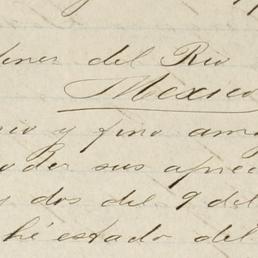 ones del Rio
Mexico
cio y fino am
oder sus aprec
y dos del 9 del
hé estado del